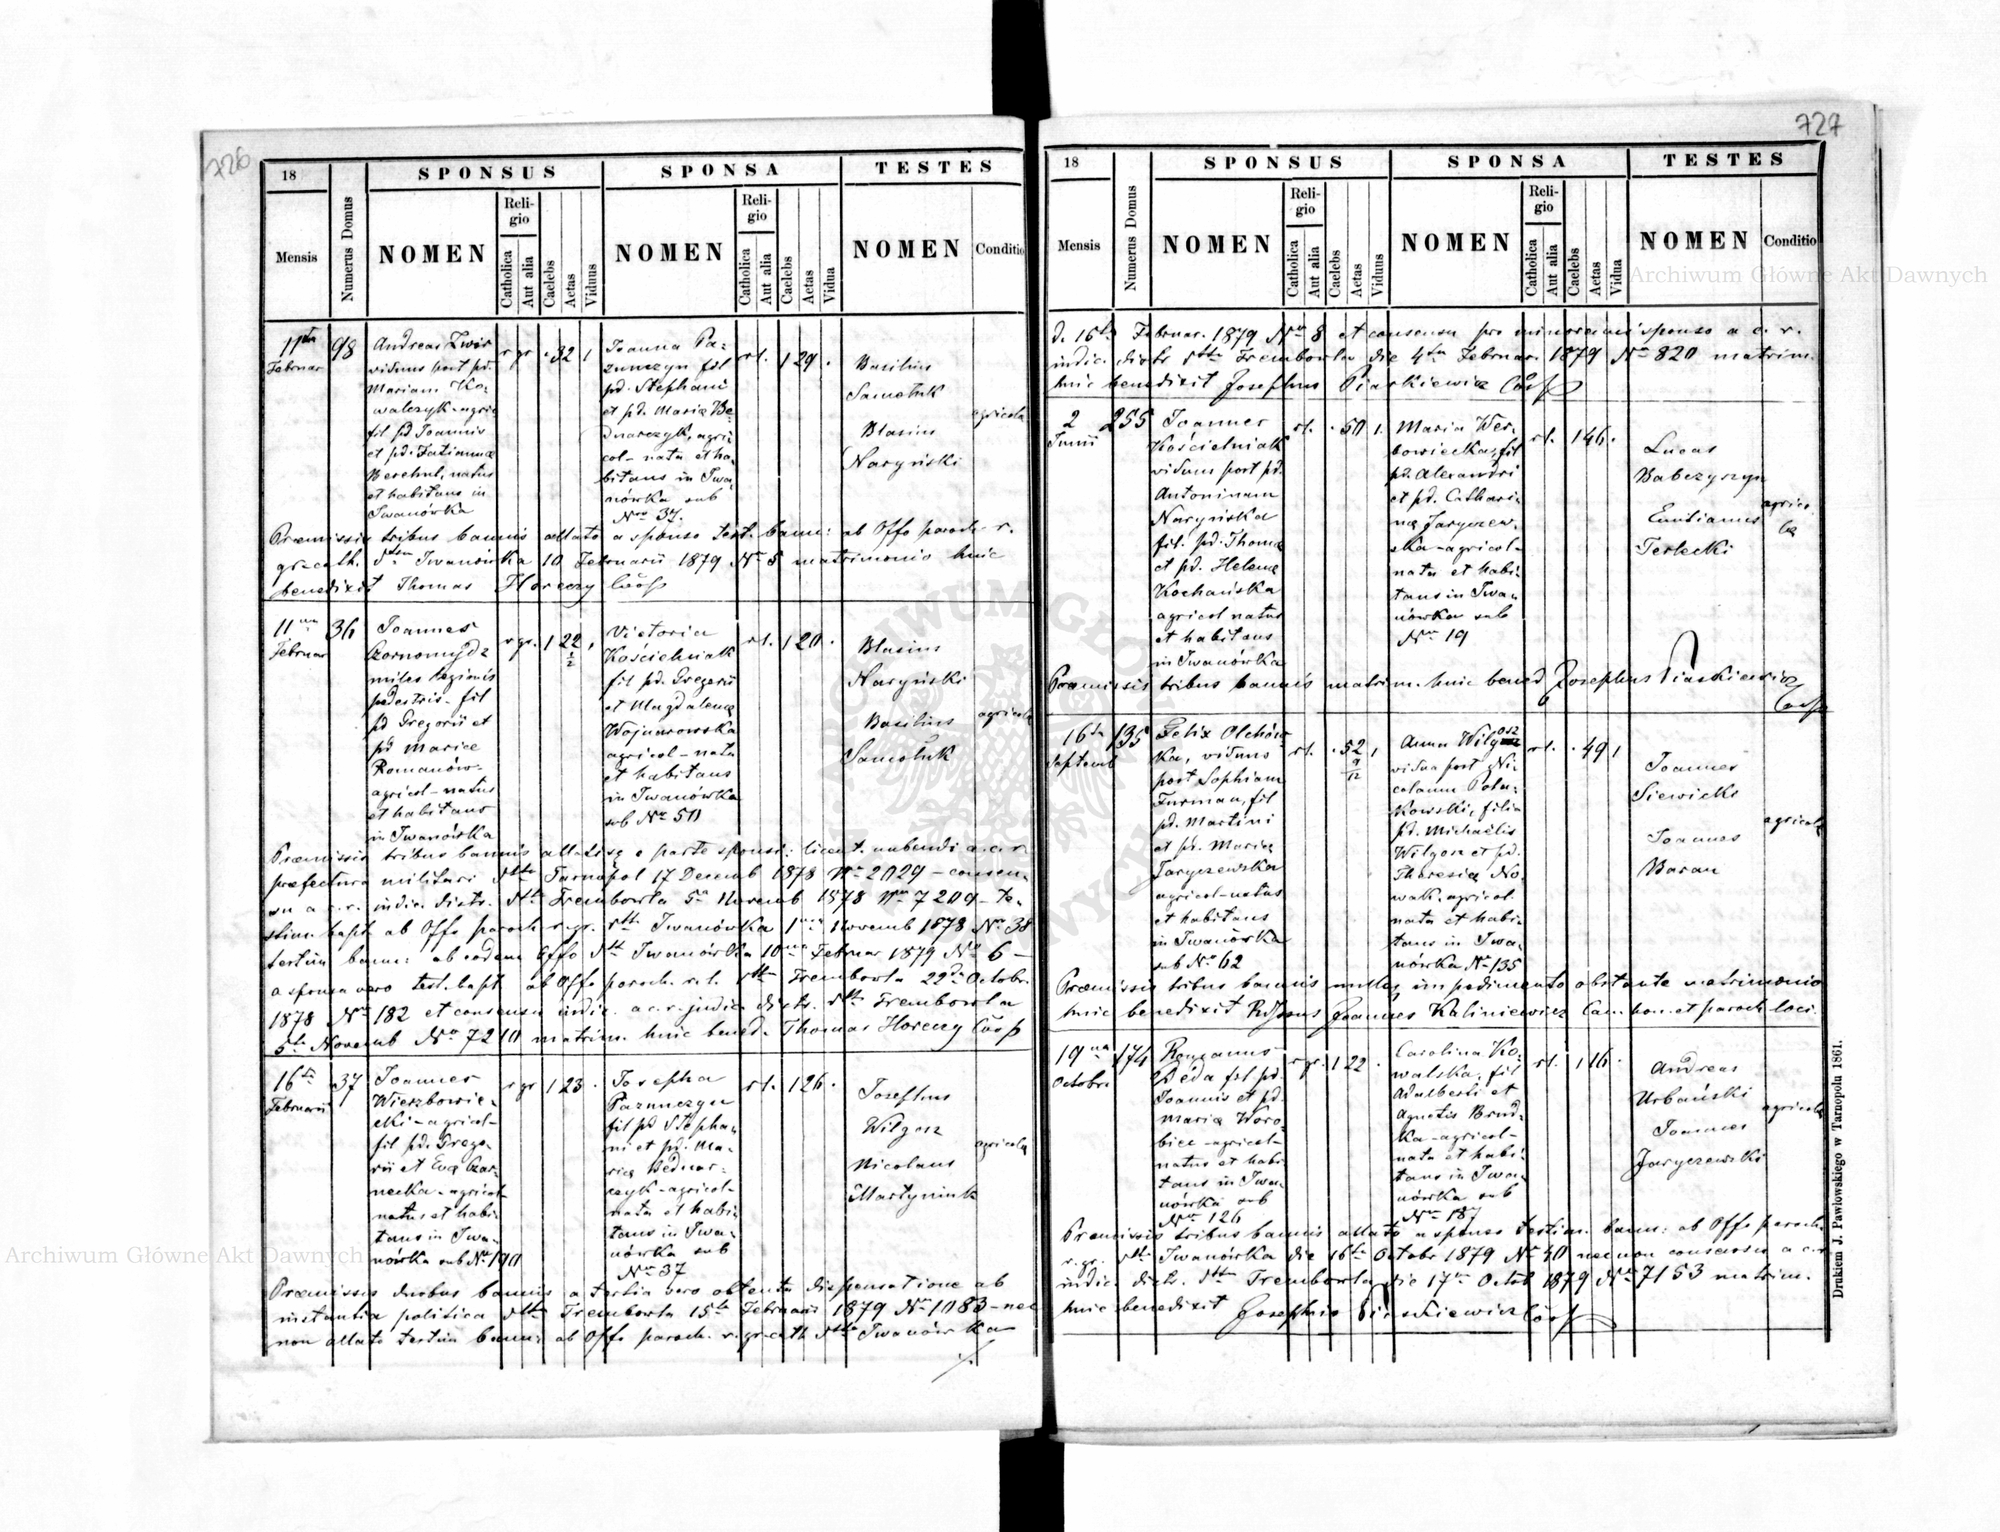 726
18
SPONSUS
SPONSA
TESTES
Mensis
Numerus Domus
NOMEN
Religio
Catholica
Aut alia
Caelebs
Aetas
Viduus
NOMEN
Religio
Catholica
Aut alia
Caelebs
Aetas
Vidua
NOMEN
Conditio
11ta
Februar
98
Andreas
viduus post pd.
Mariam Ko-
walczyk - agric
fil pd Joannis
et pd. Tatianna
natus
et habitans in
Iwanówka
r gr
32
1
Joanna Pa-
zunczyn fil
pd. Stephani
et pd. Maria Be-
dnarczyk, agri-
col - nata et ha-
bitans in Iwa-
nówka sub
Nro 37.
rl.
1 29
Basilius
Samoluk
Blasius
Naryński
agricola
Praemissis tribus bannis allato a sponso test. bann: ab Offo paroch. r.
gr. cath. Iwanówka 10 Februarii 1879 Nr 5 matrimonio huic
benedixit Thomas Horeczy
11ma
Februar
36
Joannes
Czornomydz
miles legionis
pedestris - fil
pd Gregorii et
pd Mariae
Romanów -
agricol - natus
et habitans
in Iwanówka
r gr.
1 22 1/2
Victoria
Kościelniak
fil pd. Gregorii
et Magdalena
Wojnarowska
agricol - nata
et habitans
in Iwanówka
sub Nr 50
rl.
1 20
Blasius
Naryński
Basilius
Samoluk
agricola
Praemissis tribus bannis allatisq e parte sponsi: licent. nubendi a c. r
praefectura militari Tarnopol 17 Decemb 1878 Nro 2029 - consen-
su a c. r. indic. distr. Trembowla 5a Novemb 1878 Nro 7209 - te-
stim. bapt. ab Offo paroch r. gr. Iwanówka 1ma Novemb 1878 Nr 38
testim bann: ab eodem Offo Iwanówka 10ma Februar 1879 Nr 6 -
a sponsa vero test. bapt. ab Offo paroch. r. l. Trembowla 22da Octobr.
1878 Nro 182 et consensu a c. r. judic distr. Trembowla
5ta Novemb Nro 7210 matrim. huic bened. Thomas Horeczy
16ta
Februarii
37
Joannes
Wierzbowie-
cki - agricol -
fil pd. Grego-
rii et Eva Czar-
necka - agricol -
natus et habi-
tans in Iwa-
nówka sub Nr 190
r gr
1 23
Josepha
Pazunczyn
fil pd Stepha-
ni et pd. Ma-
ria Bednar-
czyk - agricol -
nata et habi-
tans in Iwa-
nówka sub
Nro 37
rl.
1 26
Josephus
Wilgosz
Nicolaus
Martyniuk
agricola
Praemissis duobus bannis a tertia vero obtenta dispensatione ab
instantia politica Trembowla 15ta Februarii 1879 Nr 1083 - nec
non allato testim bann: ab Offo paroch. r. gr. cath Iwanówka
727
18
SPONSUS
SPONSA
TESTES
Mensis
Numerus Domus
NOMEN
Religio
Catholica
Aut alia
Caelebs
Aetas
Viduus
NOMEN
Religio
Catholica
Aut alia
Caelebs
Aetas
Vidua
NOMEN
Conditio
d. 16ta Februar. 1879 Nro 8 et consensu pro minorenni sponso a c. r.
indic. distr Trembowla die 4ta Februar. 1879 Nro 820 matrim.
huic benedixit Josephus Piaskiewicz
2
Junii
255
Joannes
Kościelniak
viduus post pd.
Antoninam
Naryńska
fil. pd. Thoma
et pd. Helena
Kochańska
agricol natus
et habitans
in Iwanówka
rl.
50
1
Maria Wer-
bowiecka, fil
pd. Alexandri
et pd. Cathari-
na Jaryczew-
ska - agricol -
nata et habi-
tans in Iwa-
nówka sub
Nro 19
rl.
1 46
Lucas
Babczyszyn
Emilianus
Terlecki
agrico
lae
Praemissis tribus bannis matrim. huic bened Josephus Piaskiewicz
16ta
Septemb
135
Felix Olchów-
ka, viduus
post Sophiam
Furman, fil
pd. Martini
et pd. Maria
Jaryczewska
agricol - natus
et habitans
in Iwanówka
sub Nro 62
rl.
52 9/12
1
Anna Wilgosz
vidua post Ni-
colaum Pola-
kowski, filia
pd. Michaelis
Wilgosz et pd.
Theresia No-
wak - agricol.
nata et habi-
tans in Iwa-
nówka Nr 135
rl.
49
1
Joannes
Siewicki
Joannes
Baran
agricola
Praemissis tribus bannis nullo impedimento obstante matrimonio
huic benedixit Joannes Kaliniewicz Can. hon. et paroch loci.
19na
Octobr
174
Romanus
Béda fil pd
Joannis et pd.
Maria Woro-
biec - agricol -
natus et habi-
tans in Iwa-
nówka sub
Nro 126
r gr.
1 22
Carolina Ko-
walska, fil
Adalberti et
Agnetis Brud-
ka - agricol -
nata et habi-
tans in Iwa-
nówka sub
Nro 187
rl.
1 16
Andreas
Urbański
Joannes
Jaryczewski
agricola
Praemissis tribus bannis allato a sponso testim. bann: ab Offo paroch.
r. gr. Iwanówka die 16ta Octobr 1879 Nr 40 nec non consensu a c. r
indic. distr. Trembowla die 17ma Octob 1879 Nro 7153 matrim.
huic benedixit Josephus Piaskiewicz
Drukiem J. Pawłowskiego w Tarnopolu 1861.
Archiwum Główne Akt Dawnych
Archiwum Główne Akt Dawnych
ARCHIWUM GŁÓWNE AKT DAWNYCH